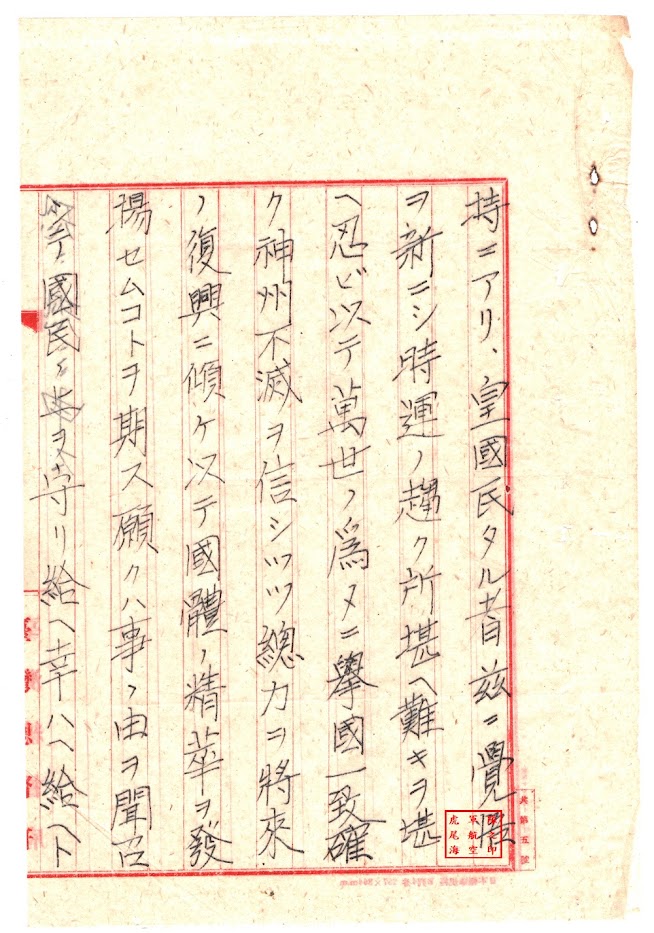 持ニアリ、皇國民タル者茲ニ覺
ヲ新ニシ時運ノ趨ク所堪ヘ難キヲ堪
ヘ忍ビ以テ萬世ノ爲メニ擧國一致確
ク神州不滅ヲ信シツツ總力ヲ將來
ノ復興ニ傾ケ以テ國體ノ精華ヲ發
揚セムコトヲ期ス願クハ事ノ由ヲ聞召
國民ヲ守リ給ヘ幸ハヘ給ヘト
虎尾海
軍航空
第五號